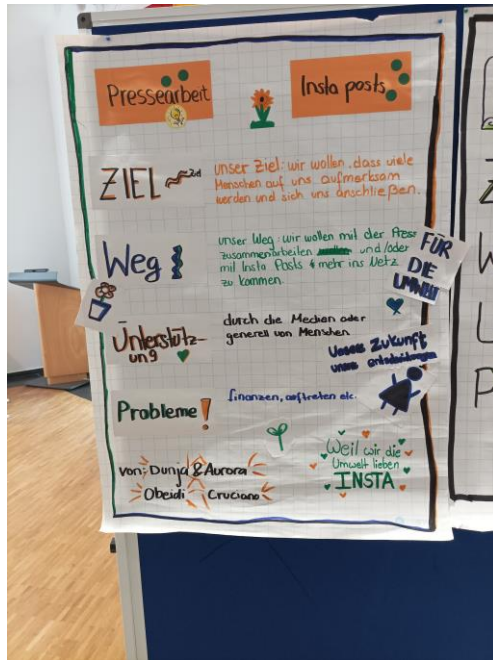 Pressearbeit
Insta posts
ZIEL
Ziel
unser Ziel: wir wollen, dass viele
Menschen auf uns aufmerksam
werden und sich uns anschließen.
Weg
unser Weg: wir wollen mit der Press
zusammenarbeiten und/oder
mit Insta Posts & mehr ins Netz
zu kommen
FÜR
DIE
UMWELT
Unterstütz-
ung
durch die Medien oder
generell von Menschen
Unsere Zukunft
unsere entscheidungen
Probleme!
finanzen, auftreten etc.
von: Dunja & Aurora
Obeidi Cruciano
Weil wir die
Umwelt lieben
INSTA